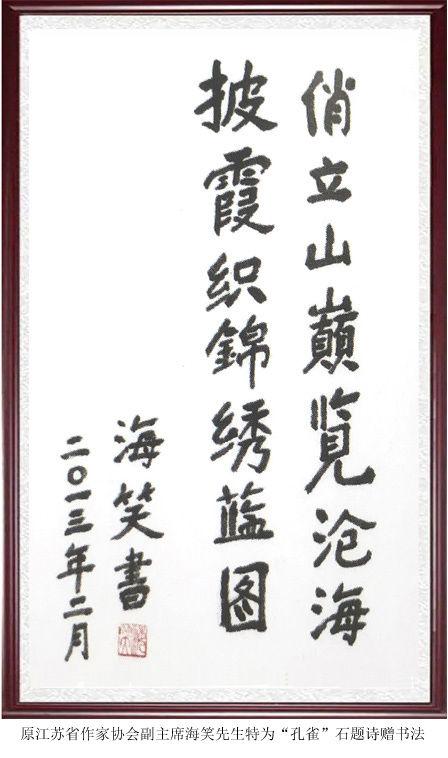 俏立山巅览沧海
披霞织錦绣蓝图
海笑書
二〇一三年二月
原江苏省作家协会副主席海笑先生特为“孔雀”石题诗赠书法